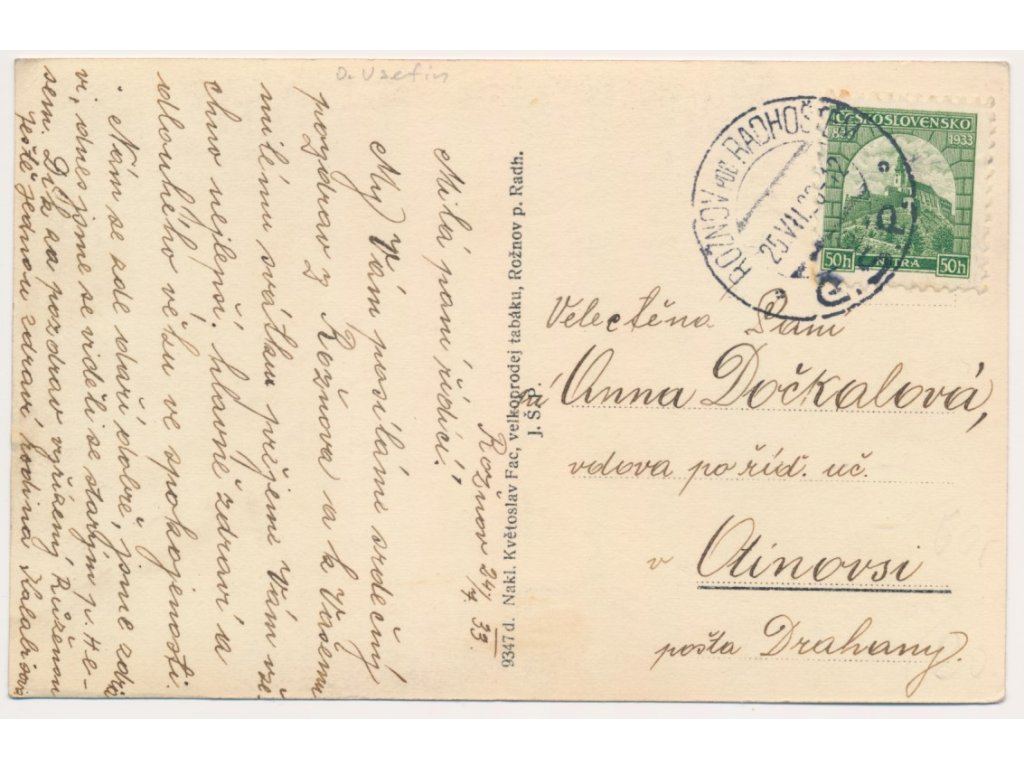 o. Vsetín
Rožnov 24/7. 33.
Milá paní řídící!
My Vám posíláme srdečný
pozdrav z Rožnova a k Vašemu
milému svátku přejeme Vám vše-
chno nejlepší, hlavně zdraví a
dlouhého věku ve spokojenosti.
Nám se zde daří dobře, jsme zdrá
vi, dnes jsme se viděli se starým p. He-
sem. Dík za pozdrav vyřízený Růženou
ještě jednou zdraví rodina
9347 d. Nakl. Květoslav Fac, velkoprodej tabáku, Rožnov p. Radh.
J. Š. P.
ROŽNOV POD RADHOŠTĚM
25.VII.33-12
ČESKOSLOVENSKO
833 1933
50h NITRA 50h
Velectěná Paní
Anna Dočkalová,
vdova po říd. uč.
v Otinovsi
pošta Drahany.